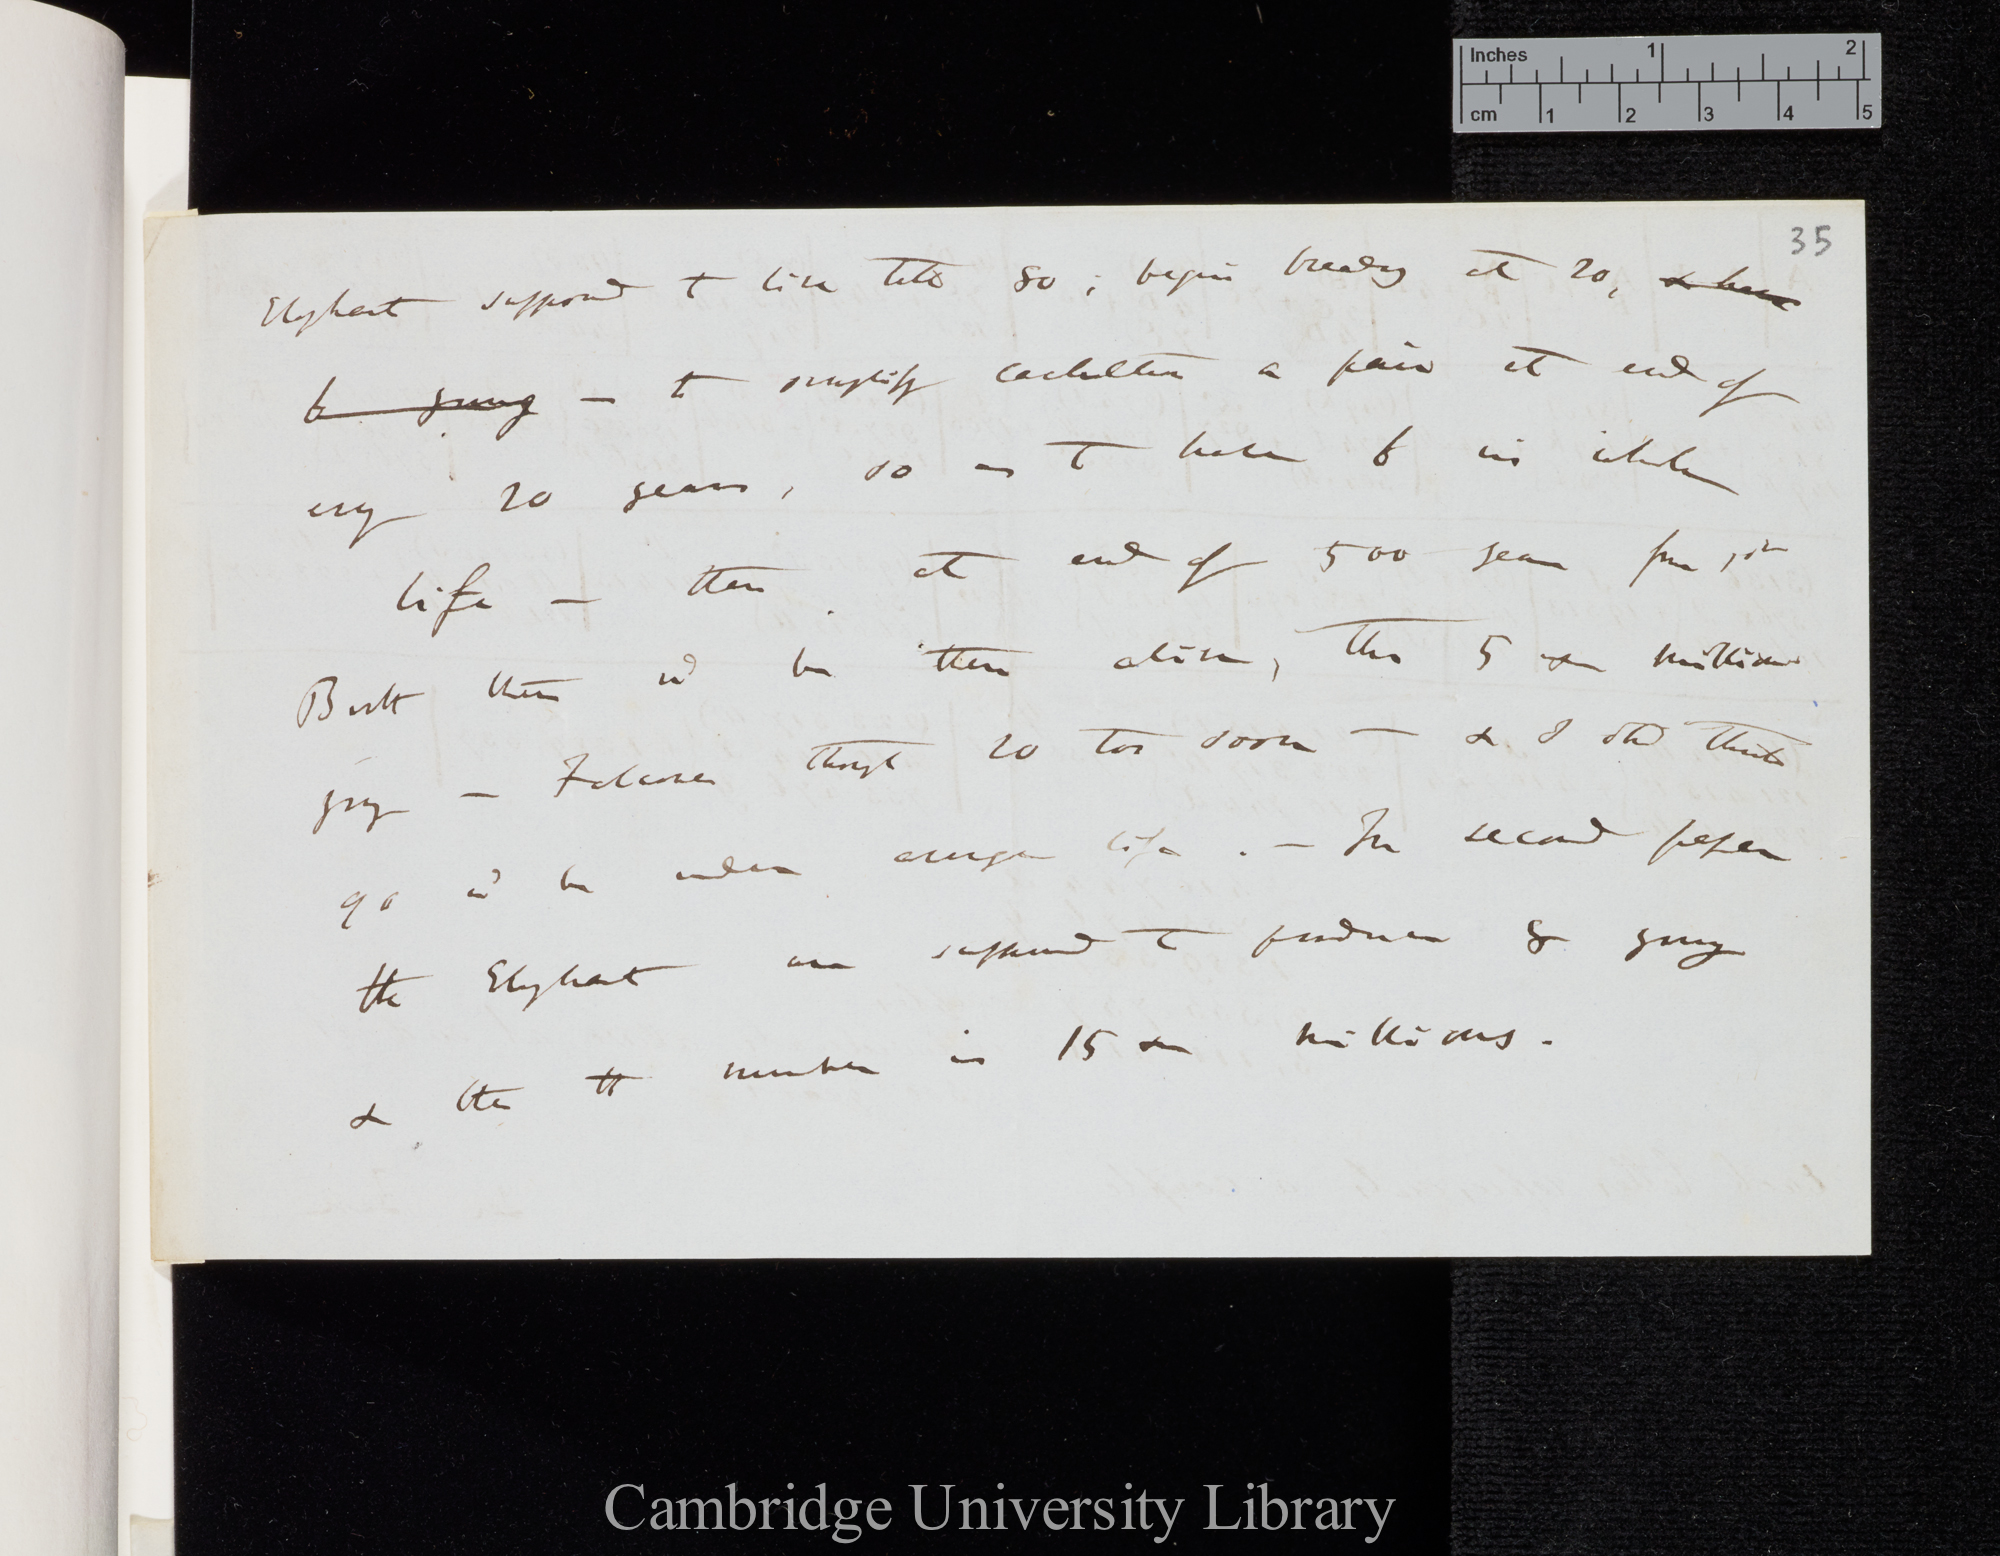 Inches 1 2
cm 1 2 3 4 5
35
Elephant supposed to live till 80; begin breeding at 20, & have
6 young — to simplify calculation a pair at end of
every 20 years, so as to have 6 in whole
life — then at end of 500 years from
Birth there wd be then alive, the 5 & millions
young — Falconer though 20 too soon — & I shd think
90 wd be under average life. — In second paper
the Elephant are supposed to produce 8 young
& then the number is 15 & millions.
Cambridge University Library